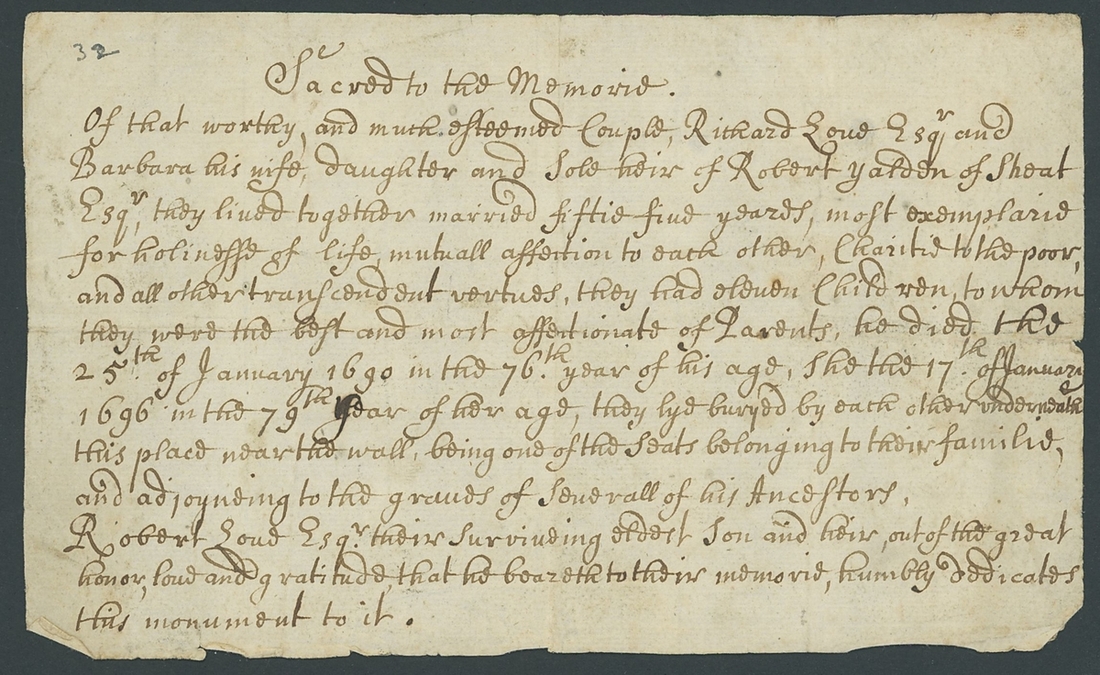 32
Sacred to the Memorie.
Of that worthy, and much esteemed Couple, Richard Love Esqr and
Barbara his wife, daughter and Sole heir of Robert yalden of Sheat
Esqr, they lived together married fiftie five yeares, most exemplarie
for holinesse of life, mutuall affection to each other, Charitie to the poor,
and all other transcendent vertues, they had eleven Children, to whom
they were the best and most affectionate of Parents, he died the
25th. of January 1690 in the 76.th year of his age, She the 17.th of January
1696 in the 79th year of her age, they lye buryed by each other underneath
this place near the wall, being one of the Seats belonging to their familie,
and adjoyneing to the graves of Severall of his Ancestors,
Robert Love Esqr their Surviveing eldest Son and heir, out of the great
honor, love and gratitude, that he beareth to their memorie, humbly Dedicates
this monument to it.